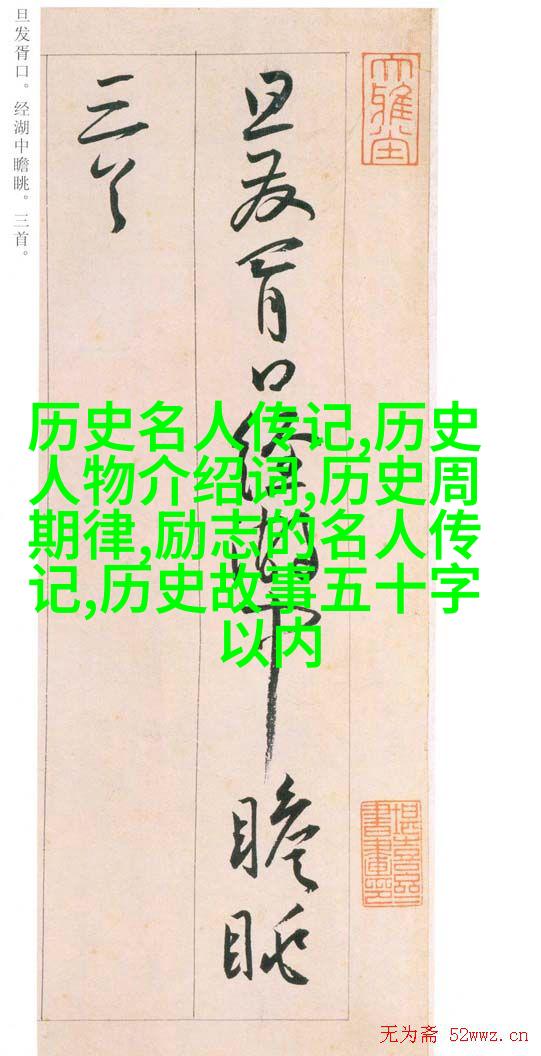 旦发胥口。经湖中瞻眺。三首。
旦发胥口经湖中
瞻眺
三首
大雅堂
历史名人传记,历史
人物介绍词,历史周
期律,励志的名人传
记,历史故事五十字
以内
无为斋 52wwz.cn